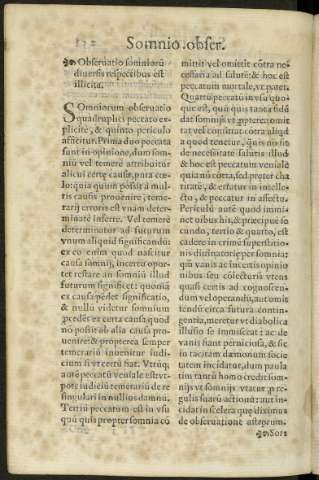 Somnio .obser.
Obseruatio somniorū
diuersis respectibus est
illicita.
SOmniorum obseruatio
quadruplici peccato ex
plicite, & quinto periculo
afficitur. Prima duo peccata
sunt in opinione, dum som
niū vel temerè attribuitur
alicui certę causę, pura cœ
lo: quia quum possit à mul
tis causis prouenire, teme-
rarij erroris est vnam deter
minatè inferre. Vel temerè
determinatur ad futurum
vnum aliquid significandū:
ex eo enim quod nascitur
causa somnij, incerto opor-
tet restare an somniū illud
futurum significet: quoniā
ex causa pēdet significatio,
& nullū videtur somnium
pēdēs ex certa causa quod
nō possit ab alia causa pro-
uenire: & propterea semper
temerariū inuenitur iudi-
cium si vt certū fiat. Vtrūq;
autē peccatū veniale est: vt-
pote iudiciū temerariū de re
singulari in nullius damnū.
Tertiū peccatum est in vsu
quū quis propter somnia cō
mittit vel omittit cōtra ne-
cessaria ad salutē: & hoc est
peccatum mortale, vt patet.
Quartū peccatū in vsu quo-
que est, quū quis tanta fidē
dat somnijs vt pptereà omit
tat vel committat cōtra aliqd
a quod tenetur, quis nō sit
de necessitate salutis illud
& hoc est peccatum veniale
quia nō cōtra, sed pręter cha
ritatē, & erratur in intelle-
ctu, & peccatur in affectu.
Periculū autē quod immi-
net oibus his, & pręcipuè se
cundo, tertio & quarto, est
cadere in crimē superstitio-
nis diuinatorię per somnia:
quū vanis ac incertis opinio
nibus seu collectorū vtens
quasi certis ad cognoscen-
dum vel operandū, aut omit
tendū circa futura contin-
gentia, meretur vt diabolica
illusio se immisceat: ac de
vanis fiant perniciosa, & sic
in tacitam dæmonum socie-
tatem incidatur, dum paula
tim tantū homo credit som-
nijs vt somnijs vtatur p re-
gulis suarū actionū: aut inci
dat in scelera quę diximus
de obseruatione astrorum.
Sors